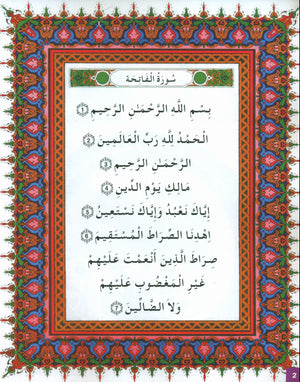 سُورَةُ الْفَاتِحَة
بِسْمِ اللَّهِ الرَّحْمَـٰنِ الرَّحِيمِ ١
الْحَمْدُ لِلَّهِ رَبِّ الْعَالَمِينَ ٢
الرَّحْمَـٰنِ الرَّحِيمِ ٣
مَالِكِ يَوْمِ الدِّينِ ٤
إِيَّاكَ نَعْبُدُ وَإِيَّاكَ نَسْتَعِينُ ٥
اهْدِنَا الصِّرَاطَ الْمُسْتَقِيمَ ٦
صِرَاطَ الَّذِينَ أَنْعَمْتَ عَلَيْهِمْ
غَيْرِ الْمَغْضُوبِ عَلَيْهِمْ
وَلَا الضَّالِّينَ ٧
2